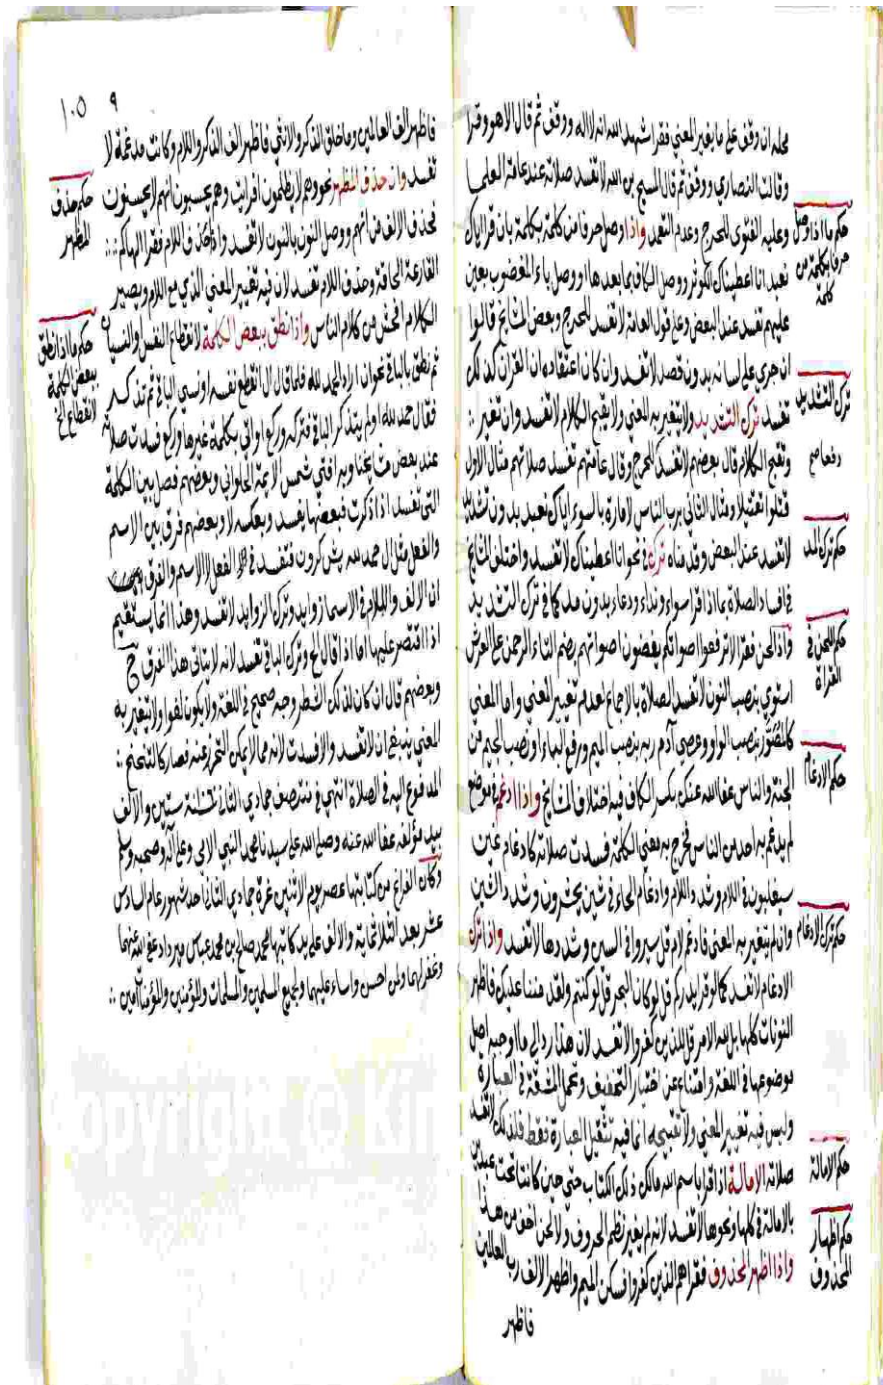 محله ان وقف على ما يغير المعنى فقرا شهد الله انه لا اله ووقف ثم قال الا هو وقرا
وقالت النصارى ووقف ثم قال المسيح بن الله لا تفسد صلاته عند عامة العلما
وعليه الفتوى للحرج وعدم التعمد واذا وصل حرفا من كلمة بكلمة بان قرا اياك
نعبد انا اعطيناك الكوثر ووصل الكاف بما بعدها او وصل باء المغضوب بعين
عليهم تفسد عند البعض وعلى قول العامة لا تفسد للحرج وبعض المشايخ قالوا
ان جرى على لسانه بدون قصد لا تفسد وان كان اعتقاده ان القران كذلك
تفسد ترك التشديد ولا يتغير به المعنى ولا يقبح الكلام لا تفسد وان تغير
وقبح الكلام قال بعضهم لا تفسد للحرج وقال عامتهم تفسد صلاتهم مثال الاول
قتلوا تقتيلا ومثال الثاني برب الناس لامارة بالسوء اياك نعبد بدون تشديد
لا تفسد عند البعض وقدمناه ترك في نحو انا اعطيناك لا تفسد واختلف المشايخ
في افساد الصلاة بما اذا قرا سواء ونداء ودعاء بدون مد كما في ترك التشديد
واذا لحن فقرا لا ترفعوا اصواتكم يغضون اصواتهم بضم التاء الرحمن على العرش
استوى بنصب النون لا تفسد الصلاة بالاجماع لعدم تغيير المعنى واما المعنى
كالمصور بنصب الواو وعصى آدم ربه بنصب الميم ورفع الباء ونصب الجيم من
الجنة والناس عفا الله عنك بكسر الكاف فيه اختلاف المشايخ واذا ادغم في موضع
لم يدغم به احد من الناس فخرج به معنى الكلمة فسدت صلاته كادغام غين
سيغلبون في اللام وشد اللام وادغام الحاء في شين يحشرون وشد الشين
وان لم يتغير به المعنى فادغم لام قل سيروا في السين وشددها لا تفسد واذا ترك
الادغام لا تفسد كما لو قرا يدرككم قل لو كان البحر قل لو كنتم ولقد مننا عليك فاظهر
النونات كلها بل لله الامر قل للذين كفروا لا تفسد لان هذا رد الى ما اوجبه اصل
موضوعها في اللغة وامتناع عن اختيار التخفيف وتحمل المشقة في العبارة
وليس فيه تغيير المعنى ولا تقبيحه انما فيه تثقيل العبارة فقط فلذلك لا تفسد
صلاته الامالة اذا قرا باسم الله مالك ذلك الكتاب حتى حين كانتا تحت عبدين
بالامالة في كلها ونحوها لا تفسد لانه لم يغير نظم الحروف ولا لحن اخف من هذا
واذا اظهر المحذوف فقرا هم الذين كفروا فسكن الميم واظهر الالف رب العالمين
فاظهر
حكم ما اذا وصل
حرفا بكلمة من
كلمة
ترك التشديد
حكم ترك المد
حكم اللحن في
القراة
حكم الادغام
حكم ترك الادغام
حكم الامالة
حكم اظهار
المحذوف
٩ ١٠٥
فاظهر الف العالمين وما خلق الذكر والانثى فاظهر الف الذكر واللام وكانت مدغمة لا
تفسد وان حذف المظهر نحو وهم لا يظلمون افرايت وهم يحسبون انهم لا يحسنون
فحذف الالف من انهم ووصل النون بالنون لا تفسد واذا حذف اللام فقرا الهاكم
القارعة الحاقة وحذف اللام تفسد لان فيه تغيير المعنى الذي مع اللام ويصير
الكلام افحش من كلام الناس واذا نطق ببعض الكلمة لانقطاع النفس والنسيان
ثم نطق بالباقي نحو ان اراد الحمد لله فلما قال ال انقطع نفسه او نسي الباقي ثم تذكر
فقال حمد لله او لم يتذكر الباقي فتركه وركع او اتى بكلمة غيرها وركع فسدت صلاته
عند بعض مشايخنا وبه افتى شمس الائمة الحلواني وبعضهم فصل بين الكلمة
التي تفسد اذا ذكرت فبعضها يفسد وبعكسه لا وبعضهم فرق بين الاسم
والفعل مثل ال حمد لله يش كرون فتفسد في الفعل لا الاسم والفرق
ان الالف واللام في الاسما زوايد وترك الزوايد لا تفسد وهذا انما يستقيم
اذا اقتصر عليها اما اذا قال الح وترك الباقي تفسد لانه لا يتاتى هذا الفرق ح
وبعضهم قال ان كان لذلك الشطر وجه صحيح في اللغة ولا يكون لغوا ولا يتغير به
المعنى ينبغي ان لا تفسد والا فسدت لانه مما لا يمكن التحرز عنه فصار كالتنحنح
المدفوع اليه في الصلاة انتهى في منتصف جمادي الثاني سنة ستين والالف
بيد مؤلفه عفا الله عنه وصلى الله على سيدنا محمد النبي الامي وعلى آله وصحبه وسلم
وكان الفراغ من كتابتها عصر يوم الاثنين غرة جمادي الثاني احد شهور عام السادس
عشر بعد الثلاثمائة والالف على يد كاتبها محمد صالح بن محمد عباس ميرداد عفى الله عنهما
وغفر لهما ولمن احسن واساء عليهما ولجميع المسلمين والمسلمات والمؤمنين والمؤمنات آمين
حكم حذف
المظهر
حكم ما اذا نطق
ببعض الكلمة
لانقطاع الخ
Copyright © Kin